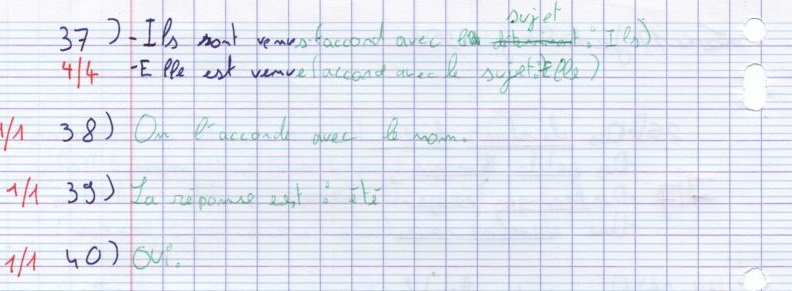 sujet
37) - Ils sont venus (accord avec le déterminant : Ils)
4/4 - Elle est venue (accord avec le sujet : Elle)
1/1 38) On l'accorde avec le nom.
1/1 39) La réponse est : été
1/1 40) Oui.